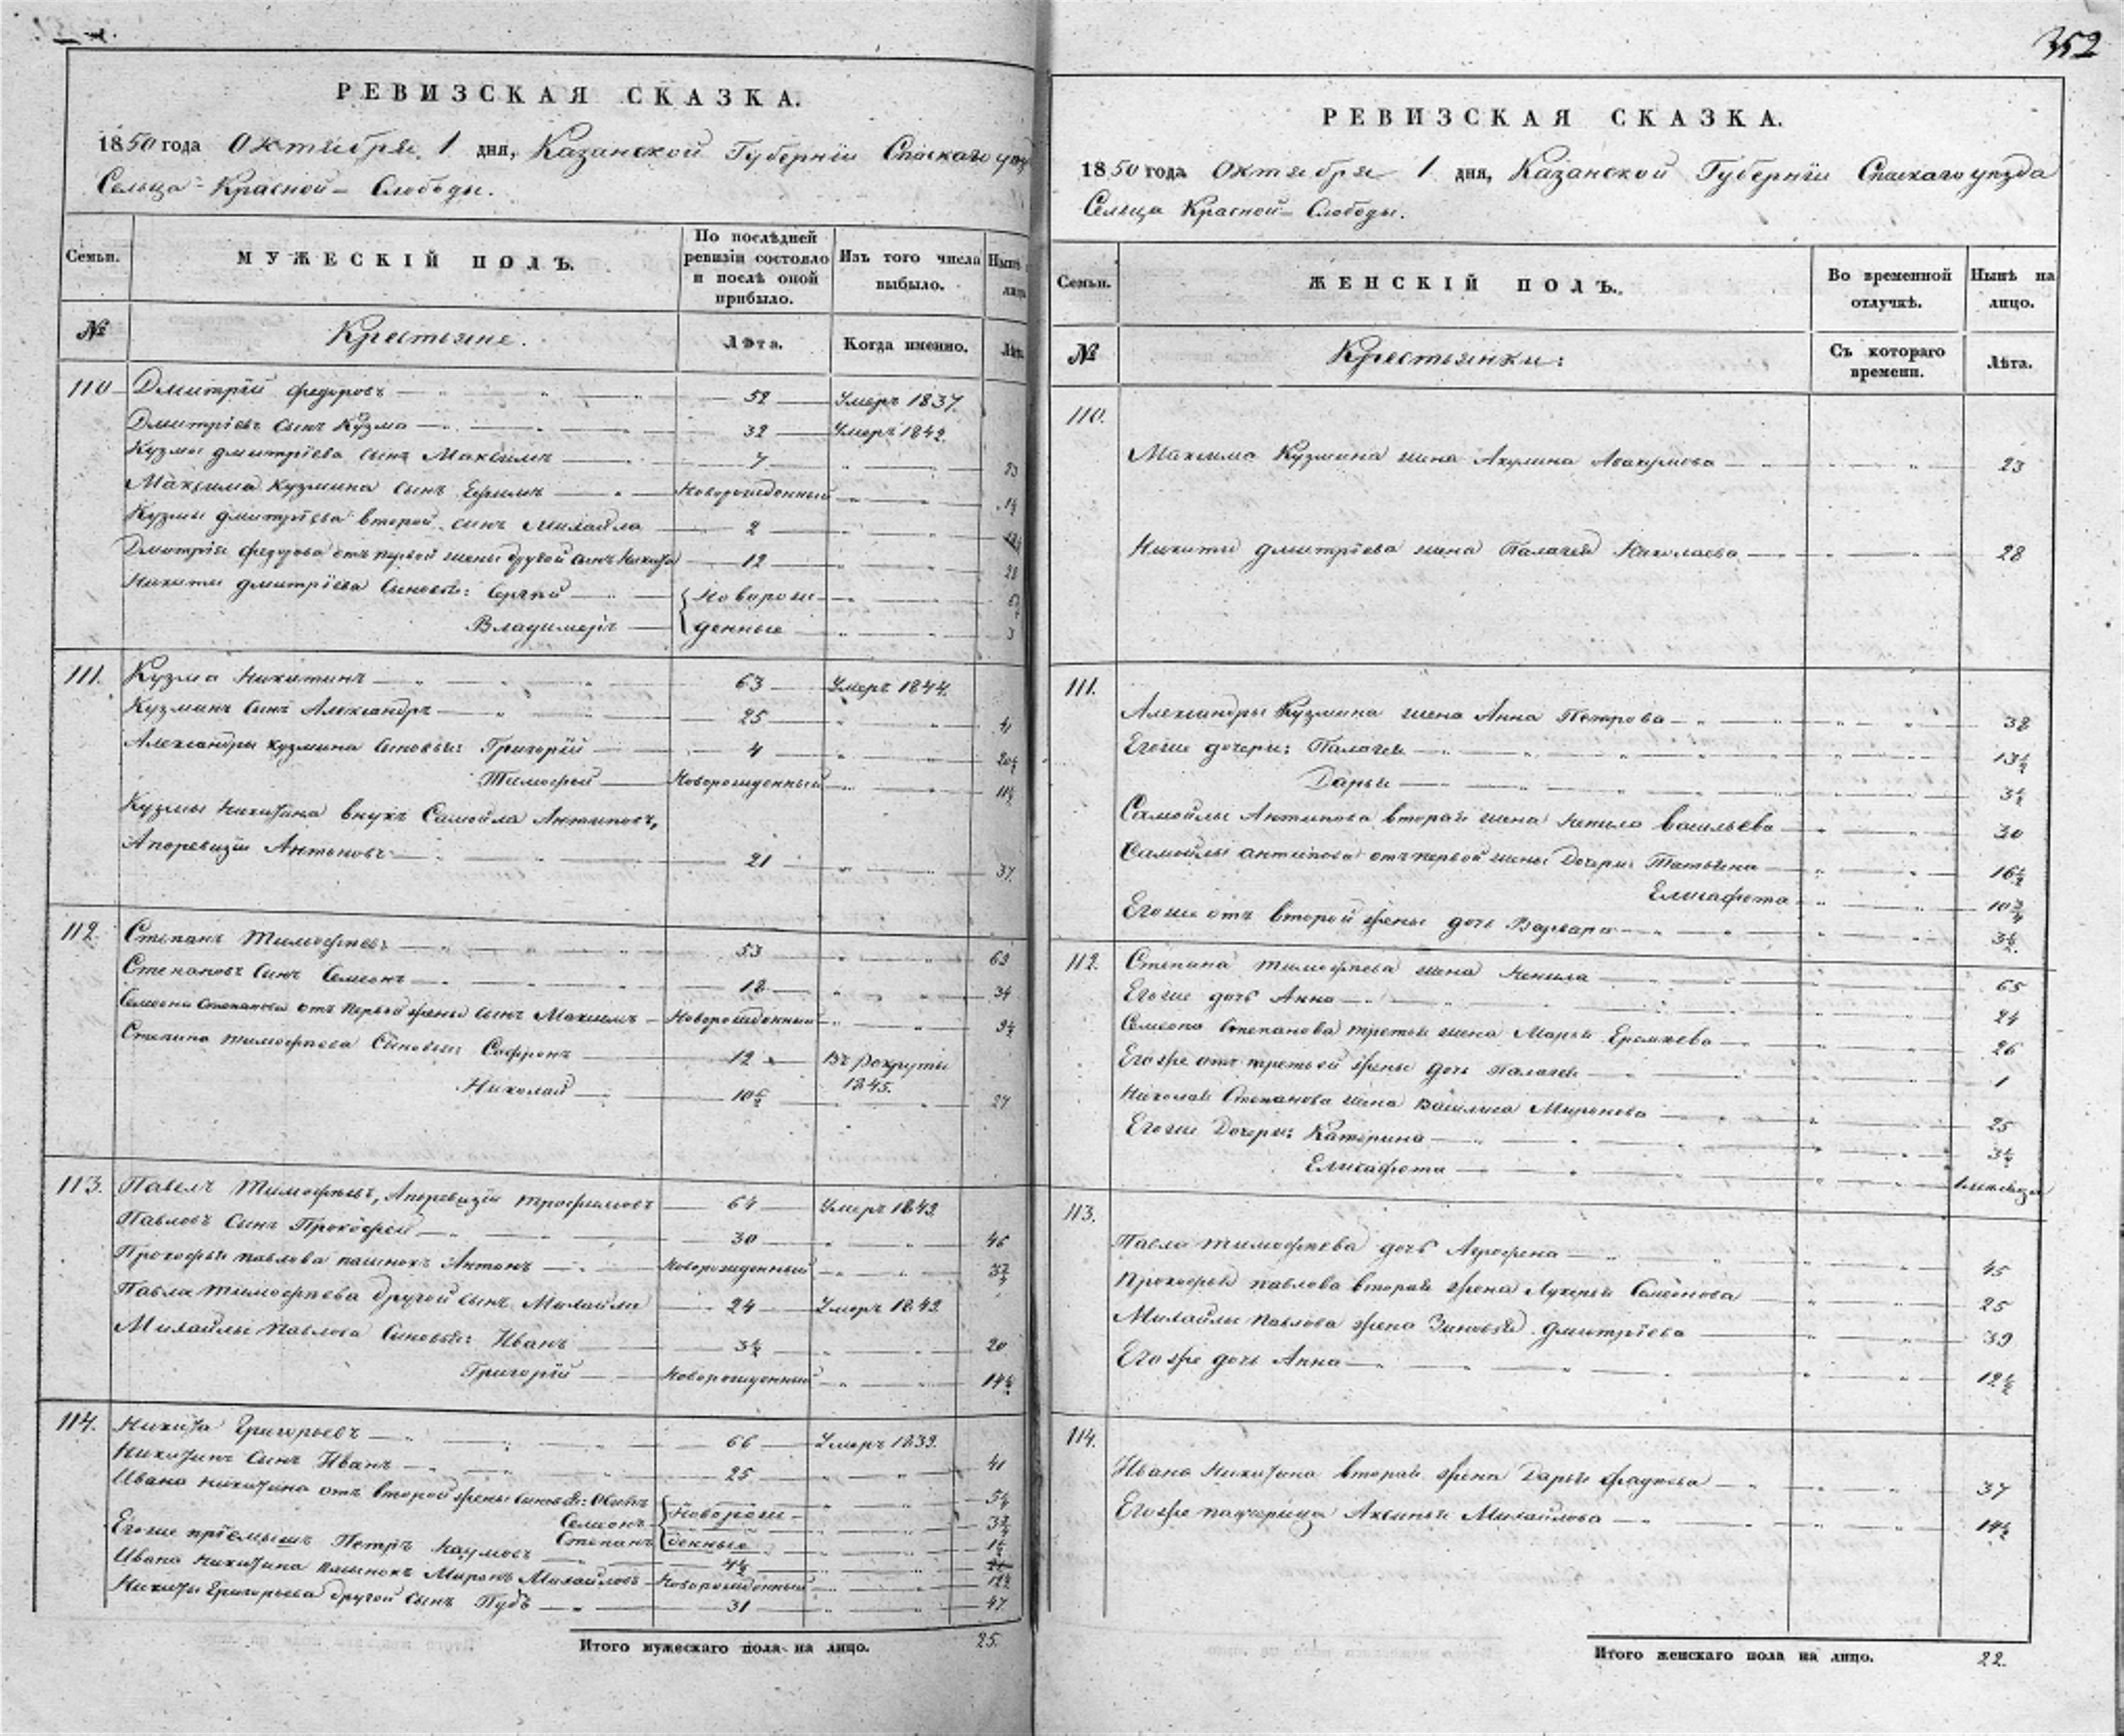 352
РЕВИЗСКАЯ СКАЗКА.
1850 года Октября 1 дня, Казанской Губернїи Спаскаго
Сельца Красной Слободы.
Семьи. МУЖЕСКІЙ ПОЛЪ. По послѣдней ревизіи состояло и послѣ оной прибыло. Изъ того числа выбыло. Нынѣ
№ Крестьяне. Лѣта. Когда именно. Лѣта
110 Дмитрїй Федоровъ 52 Умеръ 1837.
Дмитрїевъ сынъ Кузма 32 Умеръ 1842.
Кузмы Дмитрїева сынъ Максимъ 7 23
Максима Кузмина сынъ Ефимъ Новорожденный
Кузмы Дмитрїева второй сынъ Михайла 2
Дмитрїя Федорова отъ первой жены другой сынъ Никита 12 28
Никиты Дмитрїева сыновья: Сергѣй Новорож-
Владимеръ денные 3
111. Кузма Никитинъ 63 Умеръ 1844.
Кузминъ сынъ Александръ 25 41
Александры Кузмина сыновья: Григорїй 4
Тимофей Новорожденный
Кузмы Никитина внукъ Самойла Антиповъ,
Апоревизїи Антоновъ 21 37
112. Степанъ Тимофеевъ 53 69
Степановъ сынъ Семенъ 18 34
Семена Степанова отъ первой жены сынъ Максимъ Новорожденный
Степана Тимофеева сыновья: Софронъ 12 Въ рекруты
1845.
Николай 10½ 27
113. Павелъ Тимофеевъ, Апоревизїи Трофимовъ 64 Умеръ 1849.
Павловъ сынъ Прокофей 30 46
Прокофья Павлова пасынокъ Антонъ Новорожденный
Павла Тимофеева другой сынъ Михайла 24 Умеръ 1849.
Михайлы Павлова сыновья: Иванъ 3½ 20
Григорїй Новорожденный 14½
114. Никита Григорьевъ 66 Умеръ 1839.
Никитинъ сынъ Иванъ 25 41
Ивана Никитина отъ второй жены сыновья: Осипъ Новорож-
Семенъ
Степанъ денные
Егоже прїемышъ Петръ Наумовъ 4½
Ивана Никитина пасынокъ Миронъ Михайловъ Новорожденный 12½
Никиты Григорьева другой сынъ Пудъ 31 47
Итого мужескаго пола на лицо. 25.
РЕВИЗСКАЯ СКАЗКА.
1850 года Октября 1 дня, Казанской Губернїи Спаскаго уѣзда
Сельца Красной Слободы.
Семьи. ЖЕНСКІЙ ПОЛЪ. Во временной отлучкѣ. Нынѣ на лицо.
№ Крестьянки: Съ котораго времени. Лѣта.
110.
Максима Кузмина жена Акулина Абакумова 23
Никиты Дмитрїева жена Палагея Николаева 28
111.
Александры Кузмина жена Анна Петрова 38
Егоже дочери: Палагея 13½
Дарья 3½
Самойлы Антипова вторая жена Ненила Васильева 30
Самойлы Антипова отъ первой жены дочери: Татьяна 16½
Елисафета
Егоже отъ второй жены дочь Варвара 3½.
112. Степана Тимофеева жена Ненила 65
Егоже дочь Анна 24
Семена Степанова третья жена Марья Еремѣева 26
Егоже отъ третьей жены дочь Палагея 1
Николая Степанова жена Василиса Миронова 25
Егоже дочери: Катерина 3½
Елисафета
113.
Павла Тимофеева дочь Аграфена 45
Прокофья Павлова вторая жена Лукерья Семенова 25
Михайлы Павлова жена Зиновья Дмитрїева 39
Егоже дочь Анна 12½
114.
Ивана Никитина вторая жена Дарья Фадѣева 37
Егоже падчерица Аксинья Михайлова 14½
Итого женскаго пола на лицо. 22.